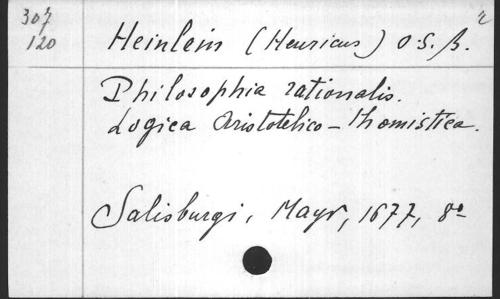 307
120
Heinlein (Henricus) O.S.B.
Philosophia rationalis.
Logica Aristotelico-thomistica.
Salisburgi, Mayr, 1677, 8º